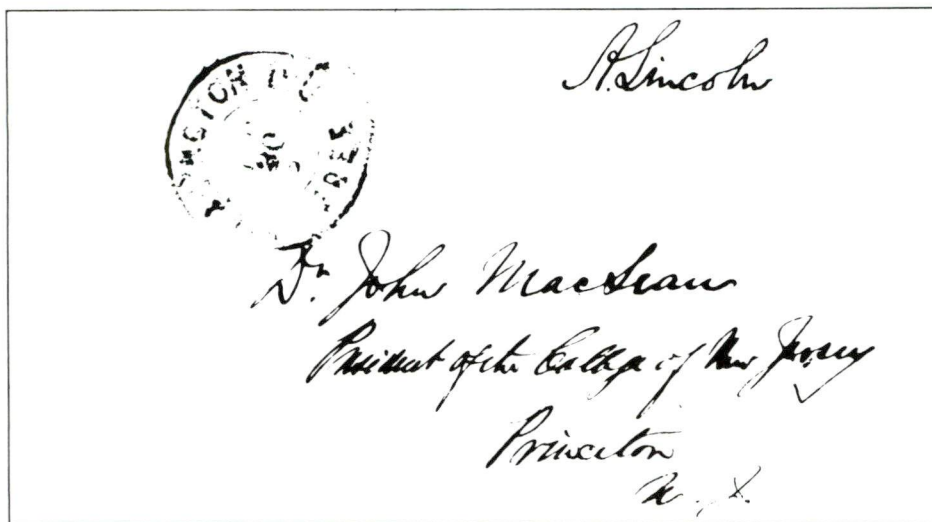 A. Lincoln
NGTON D.C.
FREE
Dr. John MacLean
President of the College of New Jersey
Princeton
N. J.